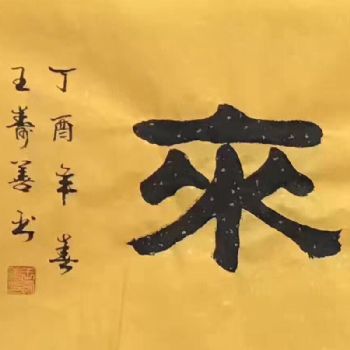 來
丁酉年春
王壽善书